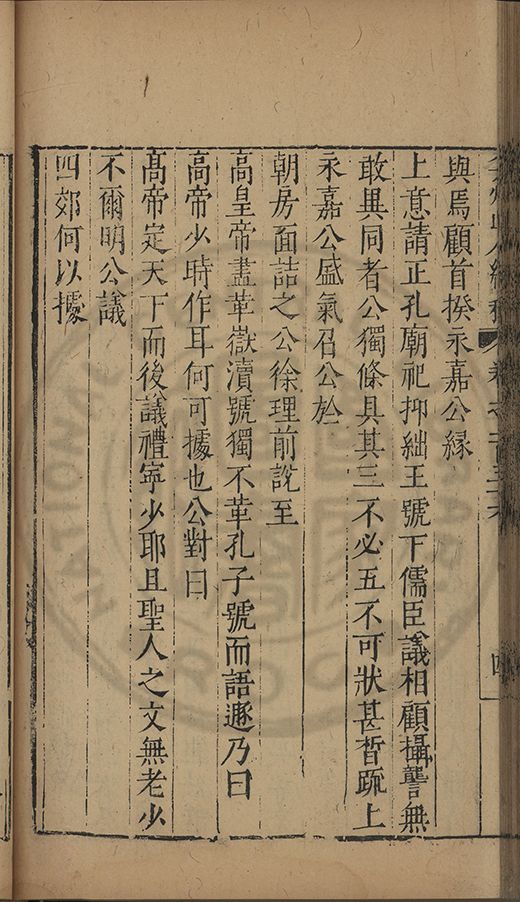 與焉顧首揆永嘉公緣
上意請正孔廟祀抑絀王號下儒臣議相顧攝讋無
敢異同者公獨條具其三不必五不可狀甚晳疏上
永嘉公盛氣召公於
朝房面詰之公徐理前說至
高皇帝盡革嶽瀆號獨不革孔子號而語遬乃曰
高帝少時作耳何可據也公對曰
高帝定天下而後議禮寧少耶且聖人之文無老少
不爾明公議
四郊何以據